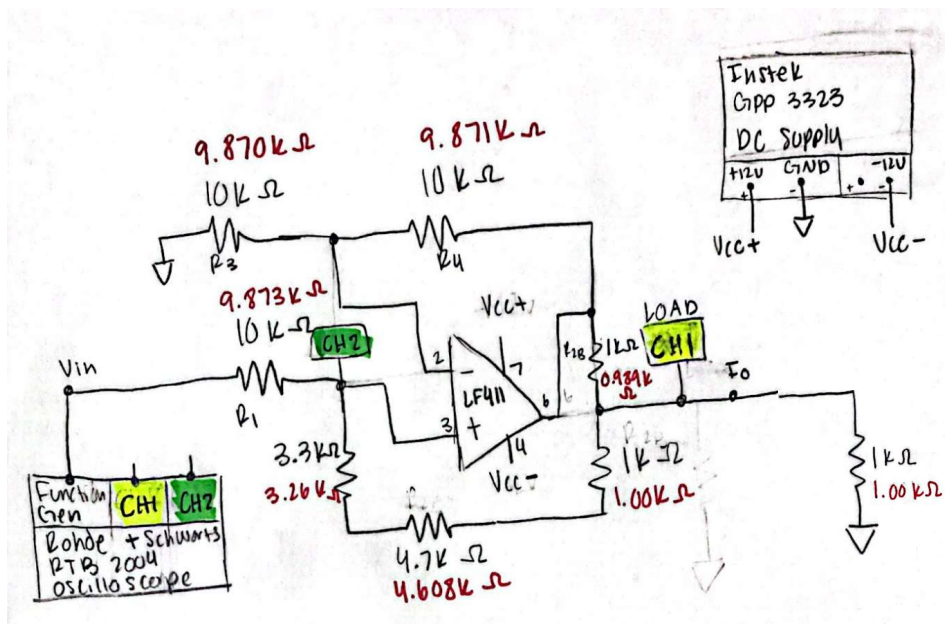 Instek
Gpp 3323
DC Supply
+12V GND -12V
+ - + -
Vcc+ Vcc-
9.870KΩ
10KΩ
R3
9.871KΩ
10KΩ
R4
9.873KΩ
10KΩ
R1
CH2
Vin
Vcc+
2 -
3 +
LF411
7
6
4
Vcc-
R2B
1KΩ
0.989K
Ω
LOAD
CH1
Io
3.3KΩ
3.26KΩ
4.7K Ω
4.608K Ω
1KΩ
1.00KΩ
1KΩ
1.00KΩ
Function
Gen
CH1
CH2
Rohde + Schwarts
RTB 2004
oscilloscope